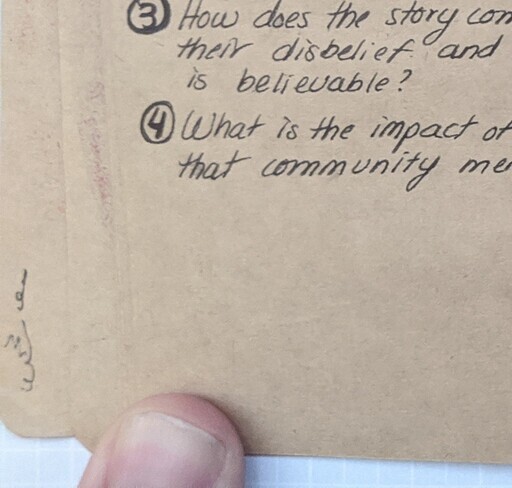 ③ How does the story con
their disbelief and
is believable?
④ What is the impact of
that community me